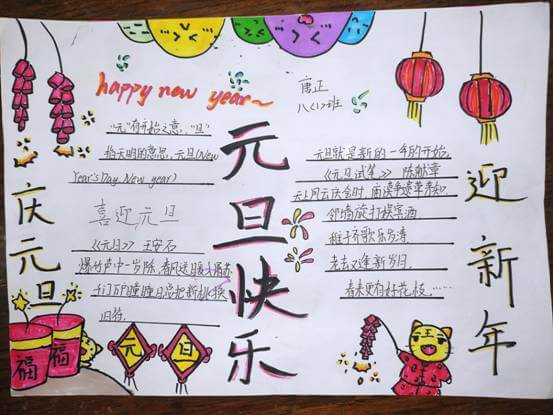 happy new year~
唐正
八<1>班
"元"有开始之意，"旦"
指天明的意思，元旦(New
Year's Day, New year)
喜迎元旦
《元旦》 王安石
爆竹声中一岁除，春风送暖入屠苏
千门万户曈曈日总把新桃换
旧符.
元旦快乐
元旦就是新的一年的开始.
《元旦试笔》 陈献章
天上风云庆会时，庙谟争遣草茅知
邻墙旋打娱宾酒
稚子齐歌乐岁诗
老去又逢新岁月
春来更有好花枝......
庆元旦
迎新年
福
福
元
旦
王